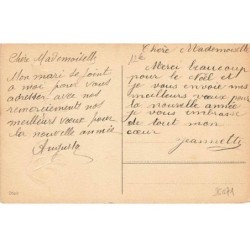 Chère Mademoiselle
Mon mari se joint
à moi pour vous
adresser avec nos
remerciements nos
meilleurs vœux pour
la nouvelle année.
Augusta
Chère Mademoiselle
Merci beaucoup
pour le Noël et
je vous envoie mes
meilleurs vœux pour
la nouvelle année
je vous embrasse
de tout mon
cœur
Jeannette